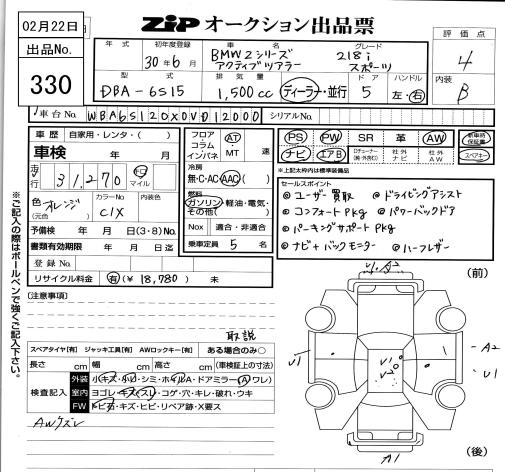 02月22日
出品No.
330
ZIP オークション出品票
評価点
4
内装
B
年式
初年度登録
30年6月
車名
BMW2シリーズ
アクティブツアラー
グレード
218i
スポーツ
型式
DBA-6S15
排気量
1,500cc
ディーラー・並行
ドア
5
ハンドル
左・右
車台No.
WBA6S120X0VD12000
シリアルNo.
車歴 自家用・レンタ・( )
車検 年 月
走行 31,270 キロ マイル
色 オレンジ
(元色)
カラーNo
C1X
内装色
予備検 年 月 日(3・8)No.
書類有効期限 年 月 日迄
登録No.
リサイクル料金 有(¥18,780) 未
フロア
コラム
インパネ
AT・MT 速
冷房
無・C・AC・AAC
燃料
ガソリン・軽油・電気・その他( )
Nox 適合・非適合
乗車定員 5 名
PS PW SR 革 AW 新車時保証書
ナビ エアB 社外ナビ 社外AW スペアキー
※上記太枠内は標準装備品
セールスポイント
◎ユーザー買取 ◎ドライビングアシスト
◎コンフォートPkg ◎パワーバックドア
◎パーキングサポートPkg
◎ナビ+バックモニター ◎ハーフレザー
※ご記入の際はボールペンで強くご記入下さい。
(注意事項)
取説
スペアタイヤ[有] ジャッキ工具[有] AWロックキー[有] ある場合のみ○
長さ cm 幅 cm 高さ cm (車検証上の寸法)
検査記入
外装 小キズ・小凹・シミ・ホイルA・ドアミラー(A ワレ)
室内 ヨゴレ・キズ(スレ)・コゲ・穴・キレ・破れ・ウキ
FW トビ石・キズ・ヒビ・リペア跡・X要ス
AWケズレ
(前)
U1・A2
U1
U1
U2
A2
U1
A1
(後)